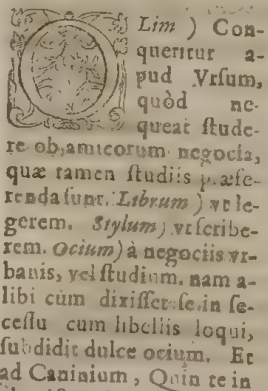 OLim ) Con-
queritur a-
pud Vrsum,
quòd ne-
queat stude-
re ob amicorum negocia,
quæ tamen studiis præfe-
renda sunt. Librum ) vt le-
gerem. Stylum) vt scribe-
rem. Ocium) à negociis vr-
banis, vel studium. nam a-
libi cùm dixisset se in se-
cessu cum libellis loqui,
subdidit dulce ocium. Et
ad Caninium, Quin te in